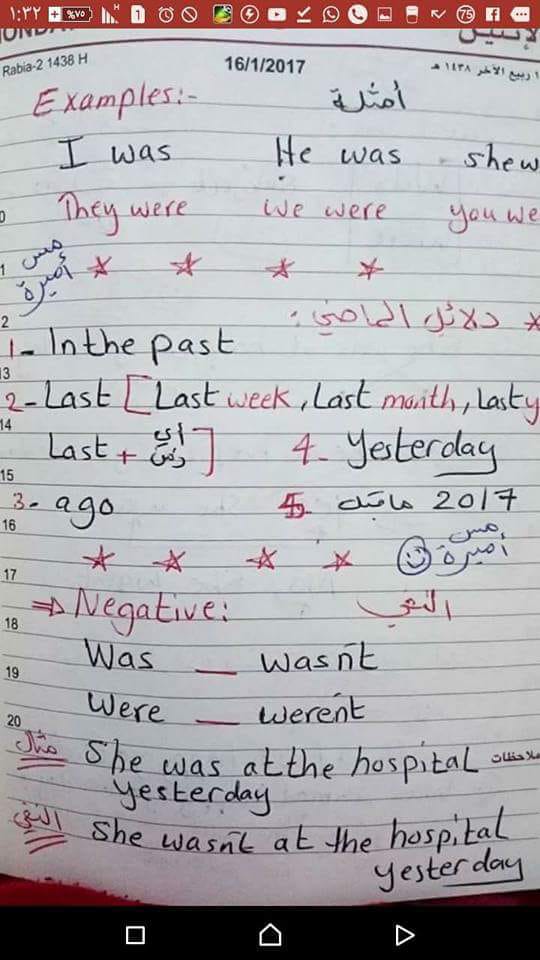 ١:٢٢ %٧٥ H 75
Rabia-2 1438 H 16/1/2017 ربيع الآخر ١٤٣٨ هـ
Examples:- أمثلة
I was He was she w
They were We were you we
مس أميرة
دلائل الماضي :
1- In the past
2- Last [Last week, Last month, Last y
Last + اي ] 4- Yesterday
3- ago 5- ماقبل 2017
مس أميرة
⇒ Negative: النفي
Was — wasn't
Were — weren't
مثال She was at the hospital ملاحظات
yesterday
النفي She wasn't at the hospital
yesterday